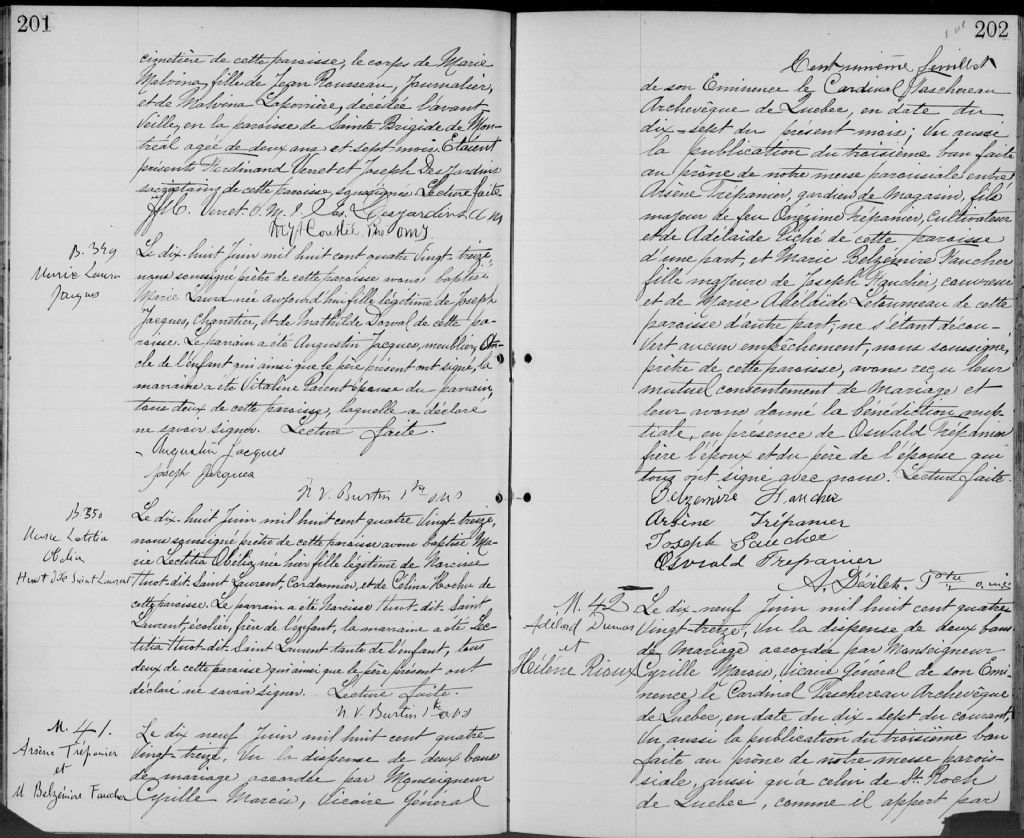 201
cimetière de cette paroisse, le corps de Marie
Malvina, fille de Jean Rousseau, Journalier,
et de Malvina Laperrière, décédée l'avant
Veille, en la paroisse de Sainte Brigide de Mon-
tréal agée de deux ans et sept mois. Etaient
présents Ferdinand Verret et Joseph Desjardins
sacristains de cette paroisse, soussignés. Lecture faite
Verret. O. M. I. Jos. Desjardins
B. 349
Marie Laura
Jacques
Le dix-huit Juin mil huit cent quatre Vingt-treize,
nous soussigné prêtre de cette paroisse avons baptisé
Marie Laura née aujourd'hui fille légitime de Joseph
Jacques, Charretier, et de Mathilde Dorval de cette pa-
roisse. Le parrain a été Augustin Jacques, meublier, On-
cle de l'enfant qui ainsi que le père présent ont signé, la
marraine a été Vitaline Parent épouse du parrain,
tous deux de cette paroisse, laquelle a déclaré
ne savoir signer. Lecture faite.
Augustin Jacques
Joseph Jacques
N. V. Burtin Ptre O.M.I
B. 350
Marie Letitia
Obélia
Huot dit Saint Laurent
Le dix-huit Juin mil huit cent quatre Vingt-treize,
nous soussigné prêtre de cette paroisse avons baptisé Ma-
rie Lectitia Obélia, née hier fille légitime de Narcisse
Huot-dit-Saint Laurent, Cordonnier, et de Célina Hochu de
cette paroisse. Le parrain a été Narcisse Huot-dit-Saint
Laurent, écolier, frère de l'enfant, la marraine a été Lec-
titia Huot-dit-Saint Laurent tante de l'enfant, tous
deux de cette paroisse qui ainsi que le père présent ont
déclaré ne savoir signer. Lecture faite.
N. V. Burtin Ptre O.M.I
M. 41.
Arsène Trépanier
et
M Belzémire Faucher
Le dix neuf Juin mil huit cent quatre-
Vingt-treize, Vu la dispense de deux bans
de mariage accordée par Monseigneur
Cyrille Marois, Vicaire Général
202
Cent unième feuillet
de son Eminence le Cardinal Taschereau
Archevêque de Quebec, en date du
dix-sept du présent mois; Vu aussi
la publication du troisième ban faite
au prône de notre messe paroissiale entre
Arsène Trépanier, gardien de Magasin, fils
majeur de feu Onezime Trépanier, Cultivateur
et de Adélaïde Piché de cette paroisse
d'une part, et Marie Belzémire Faucher
fille majeure de Joseph Faucher, couvreur
et de Marie Adélaïde Létourneau de cette
paroisse d'autre part; ne s'étant décou-
vert aucun empêchement, nous soussigné,
prêtre de cette paroisse, avons reçu leur
mutuel consentement de Mariage et
leur avons donné la bénédiction nup-
tiale, en présence de Oswald Trépanier
frère l'époux et du père de l'épouse qui
tous ont signé avec nous. Lecture faite
Belzémire Faucher
Arsène Trépanier
Joseph Faucher
Osvald Trepanier
A. Désilets. Ptre o.m.i.
M. 42
Adélard Dumas
et
Hélène Rioux
Le dix-neuf Juin mil huit cent quatre
Vingt-treize, Vu la dispense de deux bans
de Mariage accordée par Monseigneur
Cyrille Marois, Vicaire Général de son Emi-
nence le Cardinal Taschereau Archevêque
de Quebec, en date du dix-sept du courant,
Vu aussi la publication du troisième ban
faite au prône de notre messe parois-
siale, aussi qu'à celui de St. Roch
de Quebec, comme il appert par